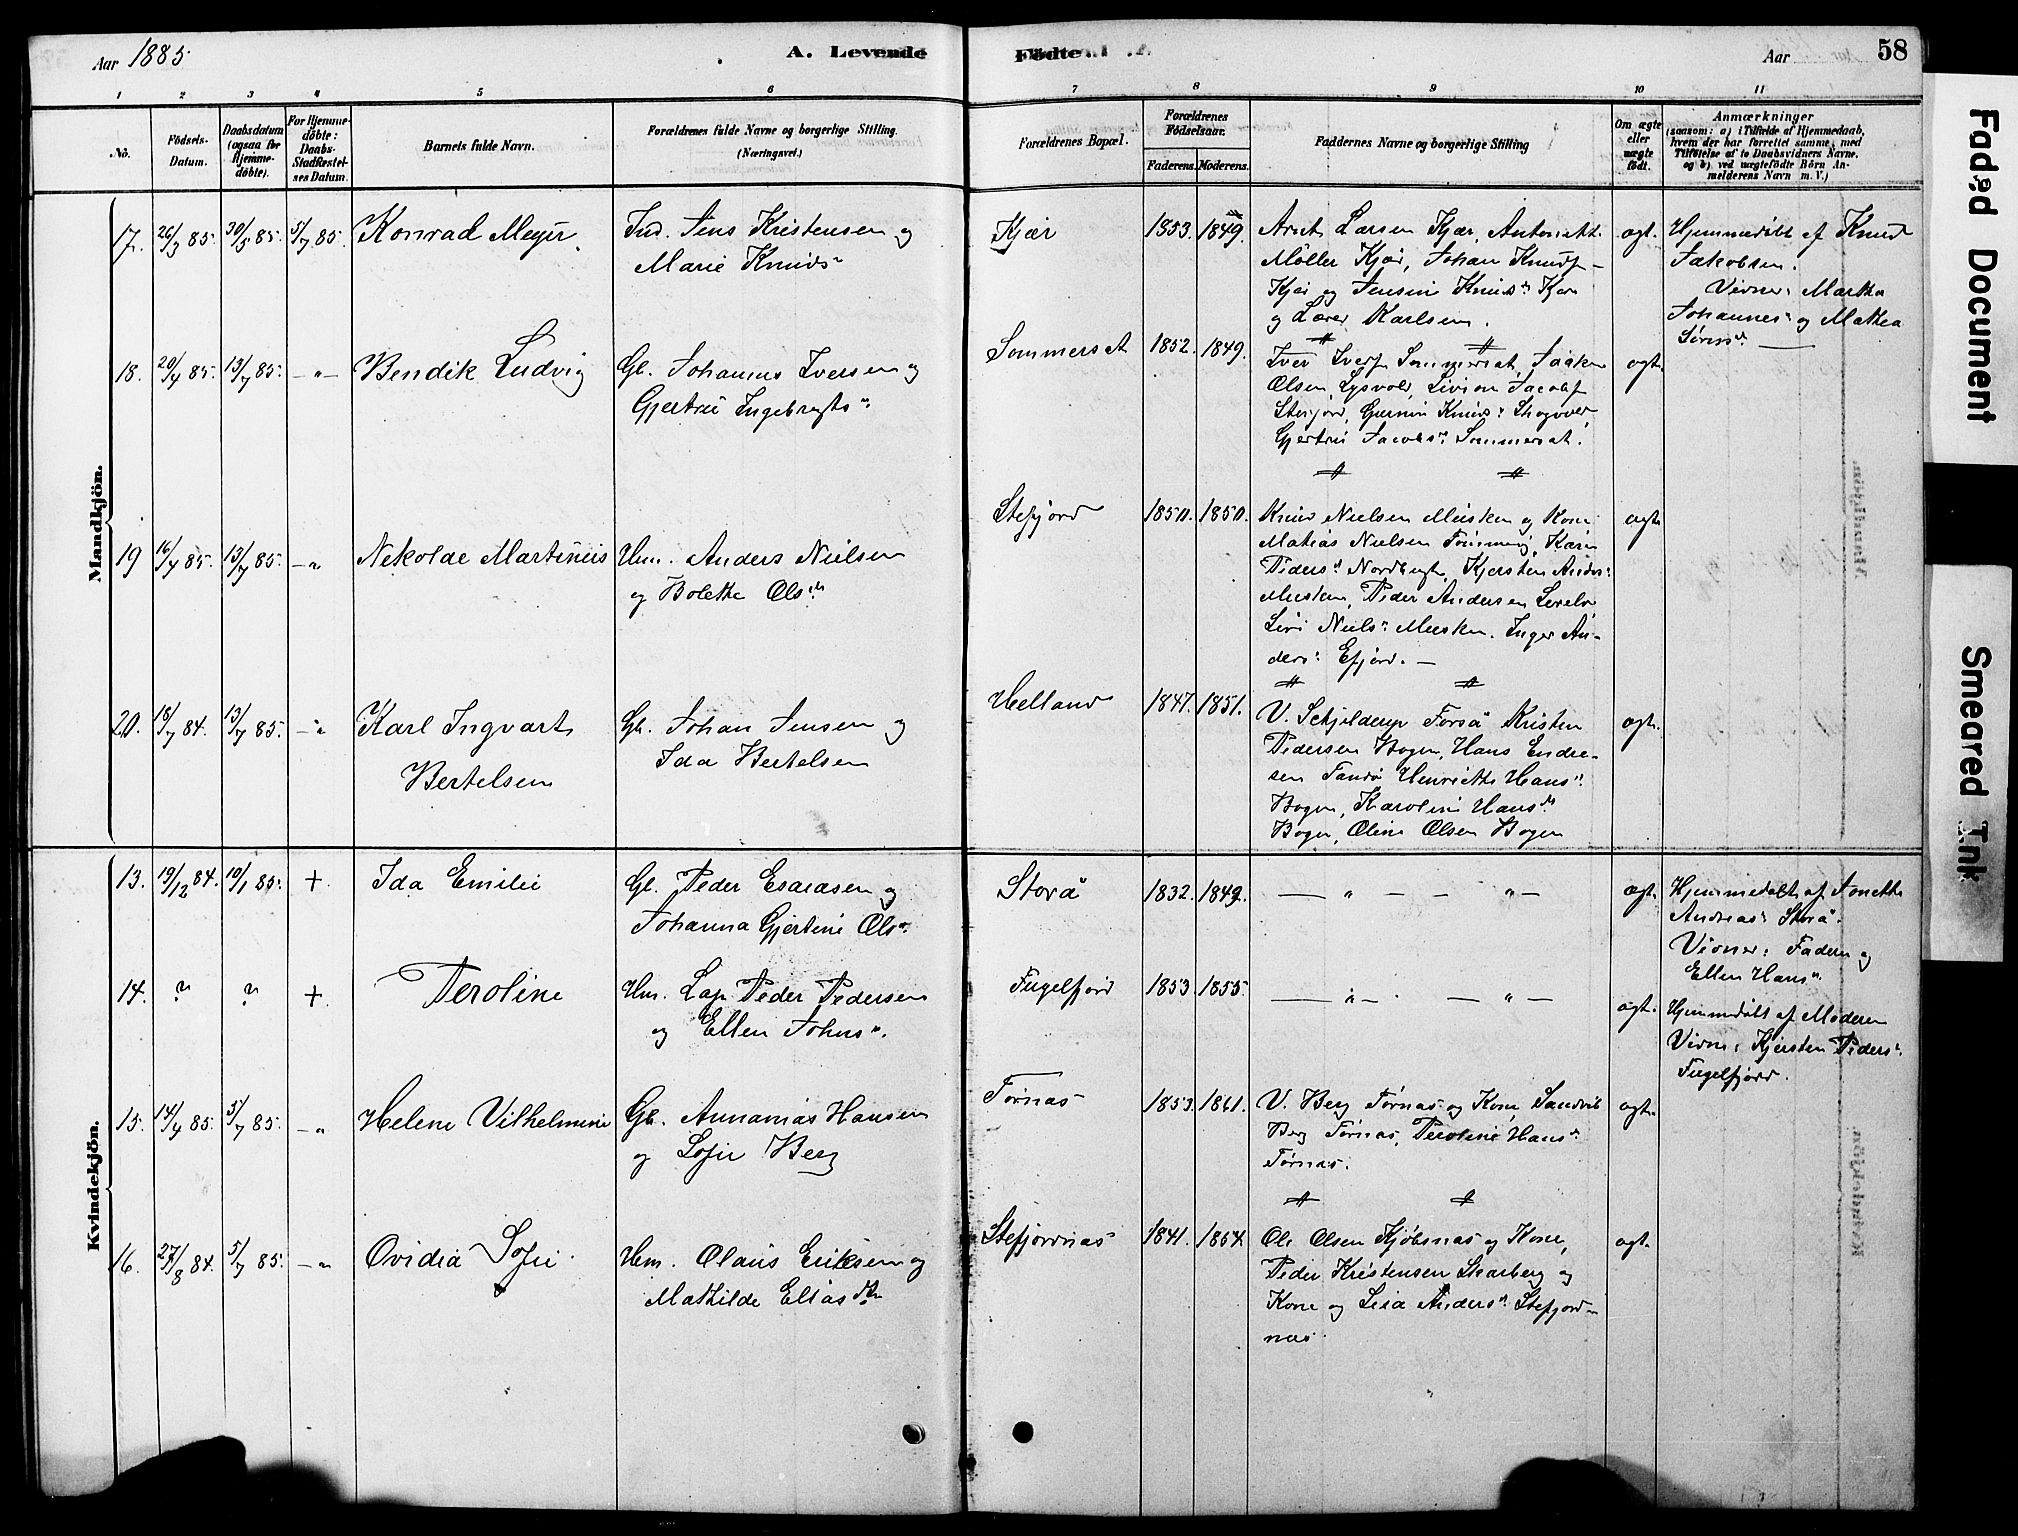 Aar 1885
A. Levende Födte
Aar
58
1 2 3 4 5 6 7 8 9 10 11
No.
Födsels-
Datum.
Daabsdatum
(ogsaa for
Hjemme-
döbte).
For Hjemme-
döbte:
Daabs-
Stadfæstel-
ses Datum.
Barnets fulde Navn.
Forældrenes fulde Navne og borgerlige Stilling.
(Næringsvei.)
Forældrenes Bopæl.
Forældrenes
Födselsaar.
Faderens. Moderens.
Faddernes Navne og borgerlige Stilling
Om ægte
eller
uægte
födt.
Anmærkninger
(saasom: a) i Tilfælde af Hjemmedaab,
hvem der har forrettet samme, med
Tilföielse af to Daabsvidners Navne.
og b) ved uægtefödte Börn An-
melderens Navn m. V.)
Mandkjön.
17. 26/3 85. 30/5 85. 5/7 85. Konrad Meyer.
Ind. Jens Kristensen og
Marie Knuds
Kjær
1853. 1849.
Arnt Larsen Kjær, Antonette
Møller Kjær, Johan Knuds
Kjær og Jensine Knuds Kjær
og Lærer Karlsen.
ægt.
Hjemmedøbt af Knud
Jakobsen.
Vidner: Martha
Johannes og Mathea
Sørens
18. 20/4 85. 13/7 85. —"— Bendik Ludvig
Gb. Johannes Iversen og
Gjertrud Ingebrigts
Sommerset
1852. 1849.
Iver Sommerset,
Olsen, Lysvold,
Stefjord, Knuds
Gjertrud Jacobs Sommerset.
ægte
19 16/4 85. 13/7 85. —" Nekolae Martinus
Hm. Anders Nielsen
og Bolette Ols
Stefjord
1850. 1850.
Knud Nielsen Musken og Kone
Matias Nielsen Karen
Peders Kjersten Anders
Musken, Peder Andersen
Niels Musken. Inger An-
ders Efjord. —
ægte
20. 18/7 84. 13/7 85. —" Karl Ingvart
Bertelsen
Gb. Johan Jensen og
Ida Bertelsen
Helland
1847. 1851.
V. Schjelderup Forså Kristen
Pedersen Bogen, Hans Endre-
sen Henriette Hans
Bogen, Karoline Hans
Bogen, Oline Olsen Bogen
ægte.
Kvindekjön.
13. 19/12 84. 10/1 85. +. Ida Emilie
Gb. Peder Esaiasen og
Johanna Gjertine Ols
Storå
1832. 1842.
— " — — " —
ægt.
Hjemmedøbt af Jonette
Andreas Storå.
Vidner: Faderen og
Ellen Hans
14. ? ? +. Peroline
Hm. Lap Peder Pedersen
og Ellen Johns
Fugelfjord
1853. 1855.
— " — — " —
ægt.
Hjemmedøbt af Moderen
Vidne: Kjersten Peders
Fugelfjord.
15. 14/4 85. 5/7 85. —" Helene Vilhelmine
Gb. Annanias Hansen
og Sofie Berg
Tørnæs
1853. 1861.
V. Berg Tørnæs og Kone,
Berg Tørnæs, Peroline Hans
Tørnæs.
ægte
16. 27/8 84. 5/7 85. —" Ovidia Sofie
Hm. Olaus Eriksen og
Mathilde Elias
Stefjordnæs
1841. 1854.
Ole Olsen Kjøbsnæs og Kone,
Peder Kristensen Skarberg og
Kone og Lisa Anders Stefjord-
næs.
ægt.
Faded Document
Smeared Ink